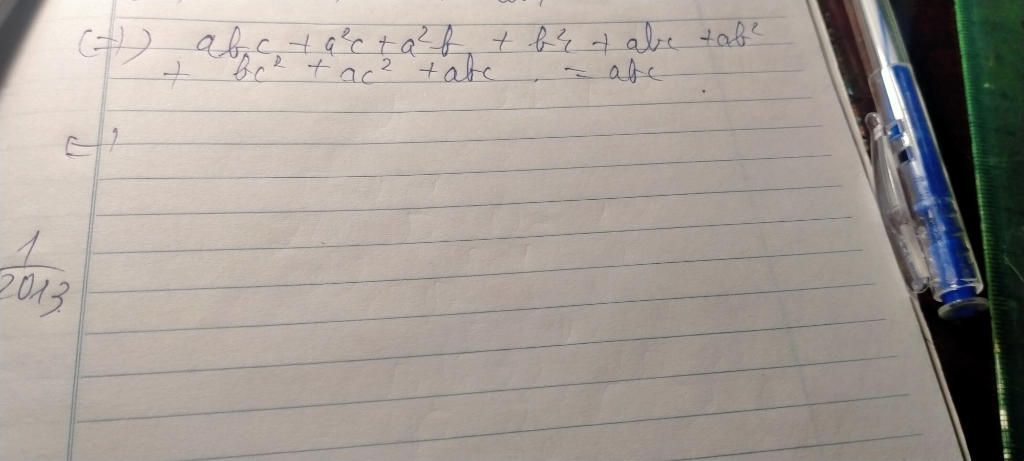 (=>) abc + a²c + a²b + b²c + abc + ab²
+ bc² + ac² + abc = abc
1
2013